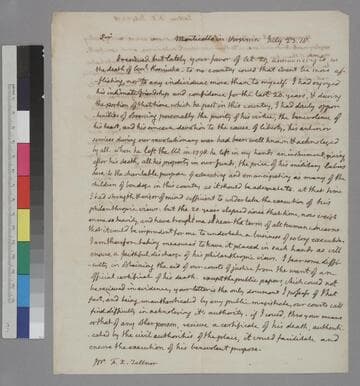 Sir Monticello in Virginia July 23. 18.
I recieved but lately your favor of Oct. 29. announcing to us
the death of Genl. Kosciuzko. to no country could that event be more af-
flicting, nor to any individual more than to myself. I had enjoyed
his intimate friendship and confidence for the last 20. years, & during
the portion of that time which he past in this country, I had daily oppor-
tunities of observing personally the purity of his virtue, the benevolence of
his heart, and his sincere devotion to the cause of liberty. his anterior
services during our revolutionary war had been well known & acknoleged
by all. when he left the US. in 1798. he left in my hands an instrument, giving
after his death, all his property in our funds, the price of his military labors
here, to the charitable purpose of educating and emancipating as many of the
children of bondage in this country as it should be adequate to. at that time
I had strength & vigor of mind sufficient to undertake the execution of this
philanthropic view. but the 20 years elapsed since that time, now exist
and have brought me so near the term of all human concerns
that it would be imprudent for me to undertake a business of so long execution.
I am therefore taking measures to have it placed in such hands as will
ensure a faithful discharge of his philanthropic views. I fear some diffi-
culty in obtaining the aid of our courts of justice from the want of an
official certificate of his death. except the public papers which could not
be recieved in evidence, your letter is the only document I possess of that
fact, and being unauthenticated by any public magistrate, our courts will
find difficulty in acknoleging it's authority. if I could thro' your means
or that of any other person, recieve a certificate of his death authenti-
cated by the civil authorities of the place, it would facilitate and
ensure the execution of his benevolent purpose.
Mr. F. X. Zeltner